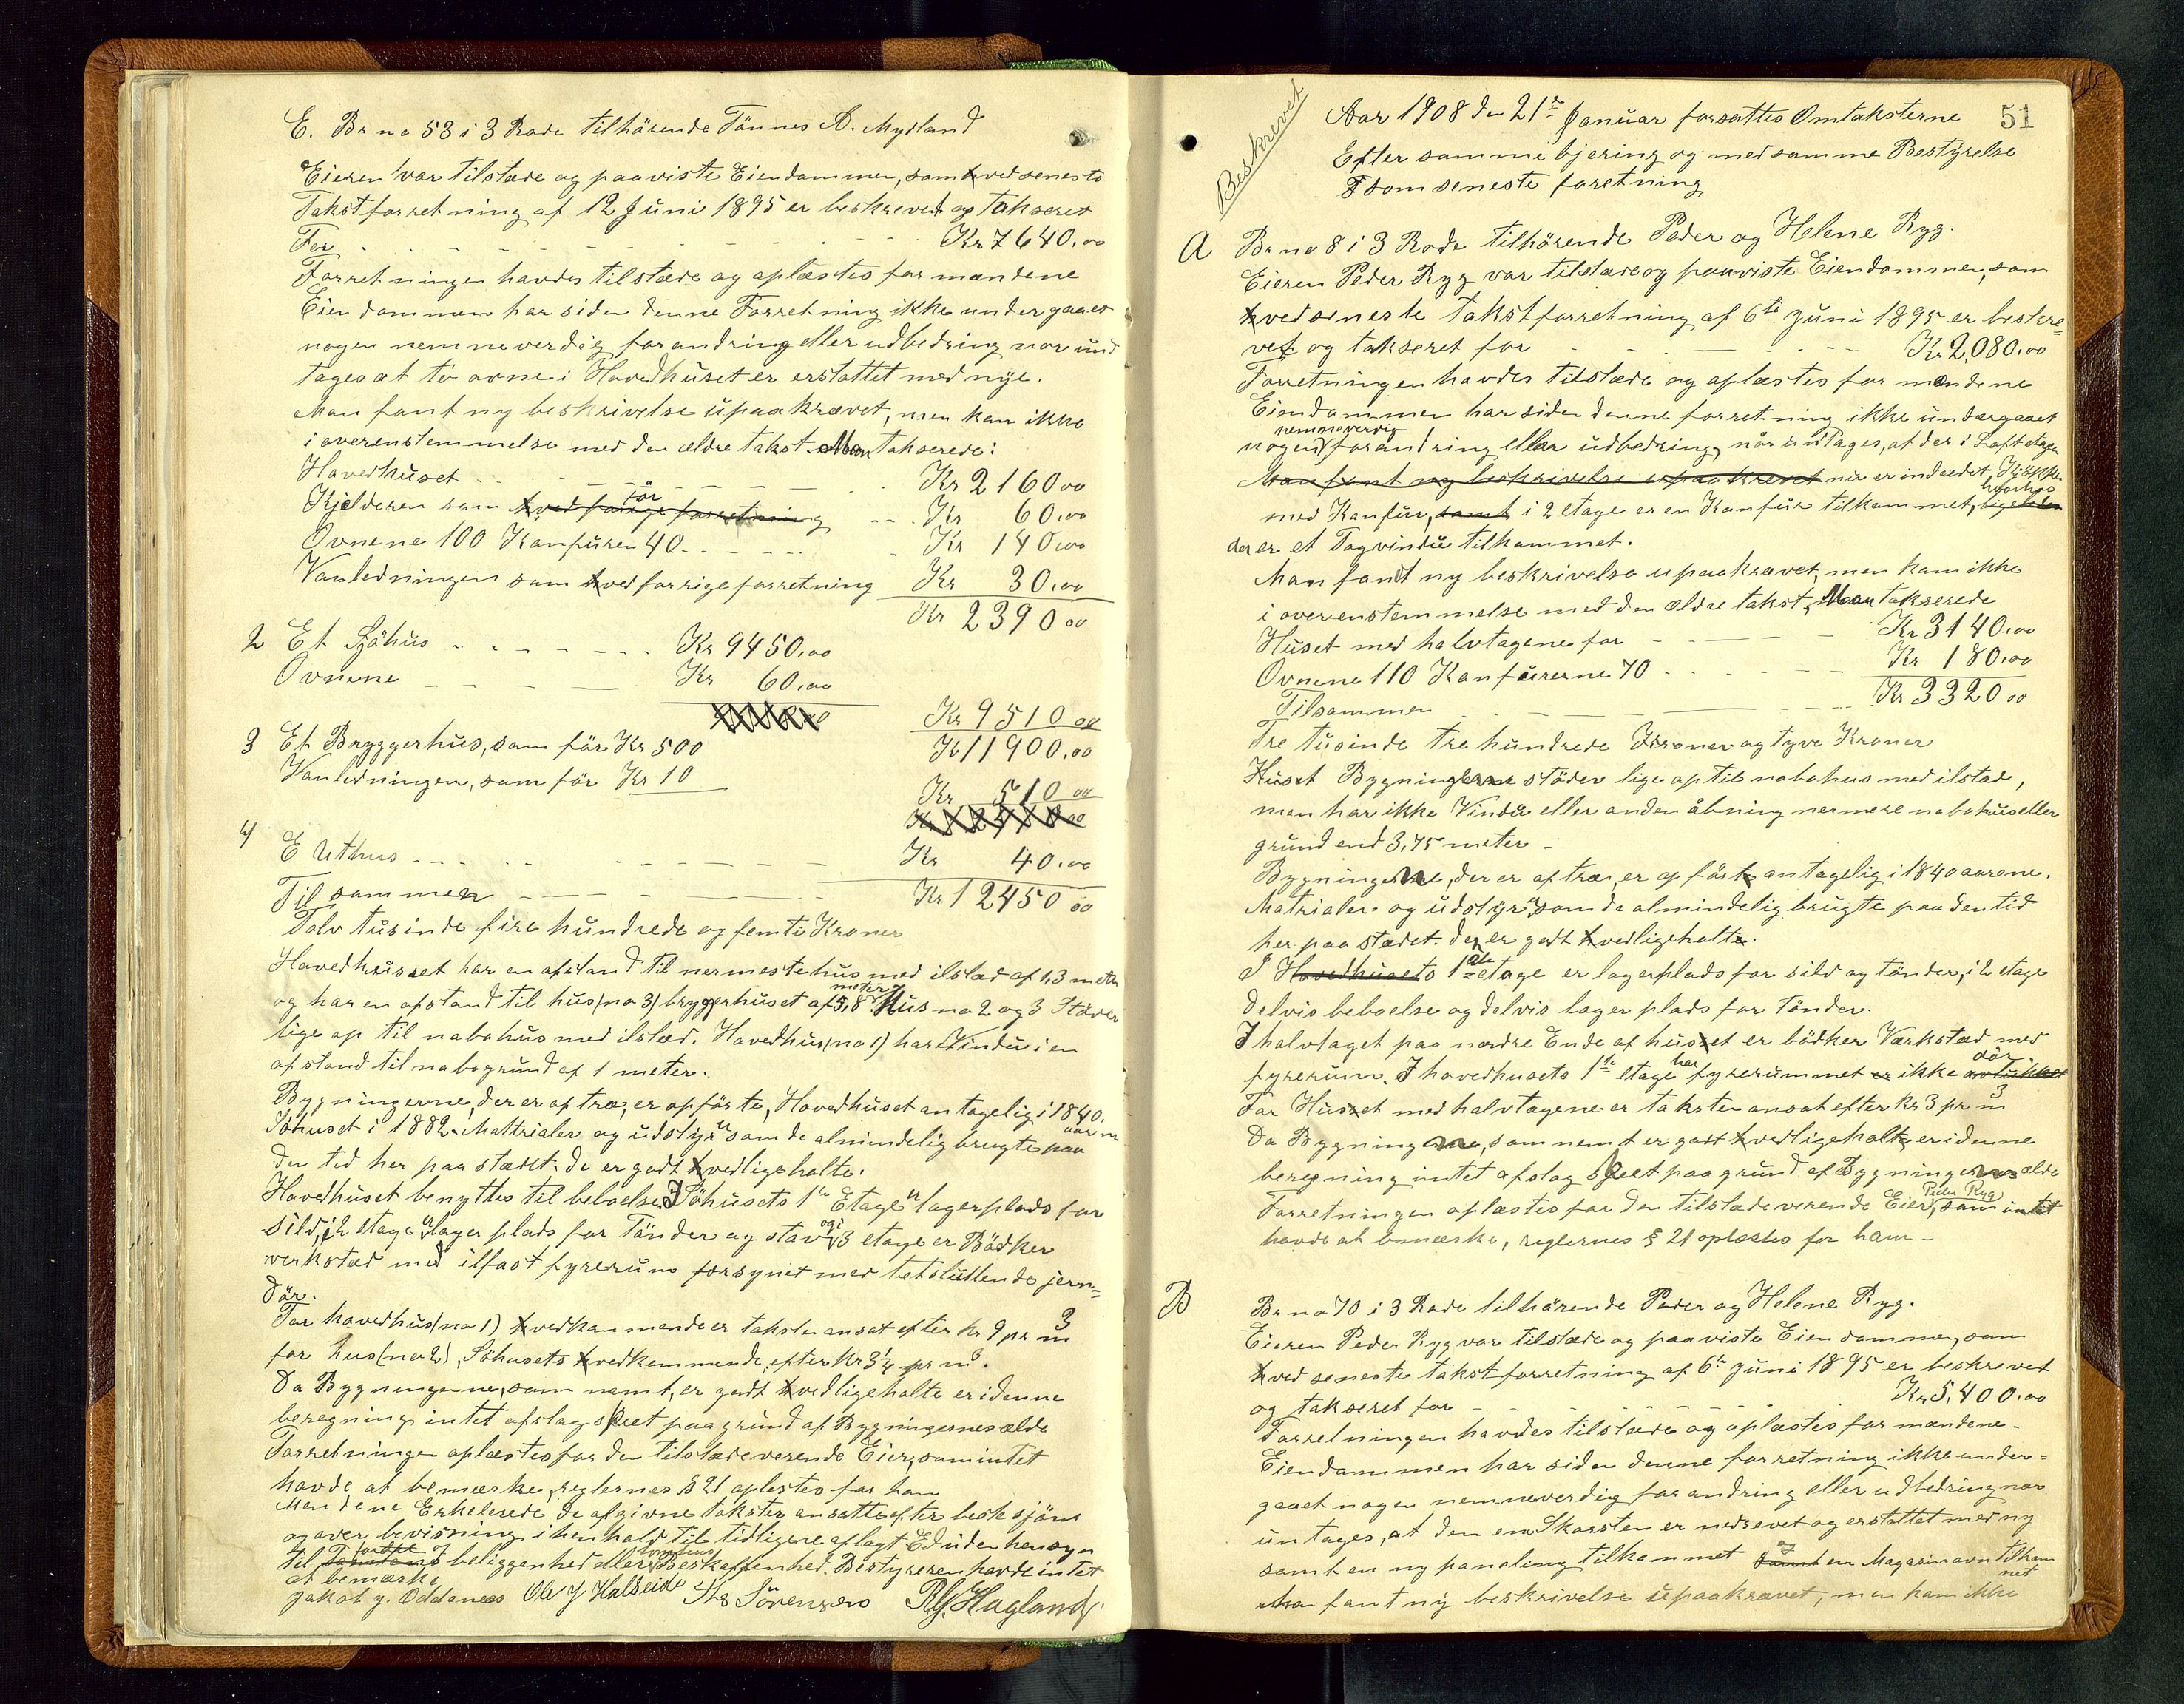 E. Br no 53 i 3 Rode tilhörende Tönnes A. Mydland
Eieren var tilstæde og paaviste Eiendommen, som ved seneste
Takstforretning af 12 Juni 1895 er beskrevet og takseret
For Kr 7640,00
Forretningen havdes tilstæde og oplæstes for mændene
Eiendommen har siden denne Forretning ikke undergaaet
nogen nemneverdig forandring eller udbedring nor und
tages at to ovne i Hovedhüset er erstattet med nye.
Man fant ny beskrivelse üpaakrævet, men kan ikke
i overenstemmelse med den ældre takst. Man takserede:
Hovedhüset Kr 2160 00
Kjelderen som för ved forrige forretning Kr 60,00
Ovnene 100 Konfüren 40 Kr 140,00
Vanledningen som ved forrige forretning Kr 30,00
Kr 2390 00
2 Et Sjöhüs Kr 9450,00
Ovnene Kr 60,00
Kr 9510 00
3 Et Bryggerhüs, som för Kr 500 Kr 11900,00
Vanledningen, som för Kr 10
Kr 510 00
4 E Uthus Kr 40,00
Tilsammen Kr 12450 00
Tolv tüsinde fire hündrede og femti Kroner
Hovedhüset har en afstand til nermeste hus med ilsted af 1,3 meter
og har en afstand til hüs (no 3) bryggerhüset af 5,8 meter. Hüs no 2 og 3 Stöder
lige op til nabohüs med ilsted. Hovedhüs (no 1) har Vindü i en
afstand til nabogründ af 1 meter.
Bygningerne, der er af træ, er opförte, Hovedhüset antagelig i 1840 aarene
Söhuset i 1882. Mattrialer og udstyr som de almindelig brugte paa
den tid her paa stædet. De er godt vedligeholte.
Hovedhüset benyttes til beboelse. I Söhusets 1ste Etage er lagerplads for
sild, i 2 etage er lagerplads for Tönder og stav og i 3 etage er Bödker
verkstæd med ilfast fyrerüm forsynet med tetslüttende jern=
dör.
For hovedhüs (no 1) vedkommende er taksten ansat efter kr 9 pr m3
for hus (no 2), Söhusets vedkommende, efter kr 3 1/4 pr m3.
Da Bygningerne, som nemt, er godt vedligeholte er i denne
beregning intet afslag skeet paa gründ af Bygningernes ælde
Forretningen oplæstes for den tilstædeverende Eier, som intet
havde at bemærke, reglernes § 21 oplestes for han
Mendene Erkelerede de afgivne takster ansatte efter beste skjön
og over bevisning i henhold til tidligere aflagt Ed uden hensyn
til beliggenhed eller Beskaffenhed. Bestyreren havde intet
at bemærke
Jakob J. Oddenes Ole J Halseide Ths Sörensen R. G. Hagland
51
Beskrevet
Aar 1908 den 21de Janüar forsattes Omtaksterne
Efter samme bjering og med samme Bestyrelse
som seneste foretning
A Br no 8 i 3 Rode tilhörende Peder og Helene Ryg.
Eieren Peder Ryg var tilstæde og paaviste Eiendommen, som
ved seneste takstforretning af 6te Juni 1895 er beskre=
vet og takseret for Kr 2,080,00
Forretningen havdes tilstæde og oplæstes for mændene
Eiendommen har siden denne forretning ikke undergaaet
nogen nemneverdig forandring eller üdbedring, når üntages, at der i Loftetagen
Man fant ny beskrivelse upaakrevet nu er indredet Kjökken
med Konfür, samt i 2 etage er en Konfür tilkommet, hvorhos
der er et Tagvindü tilkommet.
Man fandt ny beskrivelse upaakrævet, men kom ikke
i overenstemmelse med den ældre takst, Man takserede
Hüset med halvtagene for Kr 3140,00
Ovnene 110 Konfürerne 70 Kr 180,00
Tilsammen Kr 3320 00
Tre tüsinde tre hündrede Kroner og tyve Kroner
Hüset Bygningerne stöder lige op til nabohus med ilsted,
men har ikke Vindü eller anden åbning nermere nabohüs eller
gründ end 3,75 meter –
Bygningerne, der er af træ, er opfört antagelig i 1840 aarene.
Matrialer og üdstyr som de almindelig brugte paa den tid
her paa stædet. der er godt vedligeholt.
I Hovedhusets 1ste etage er lagerplads for sild og tönder, i 2 etage
delvis beboelse og delvis lagerplads for tönder.
I halvtaget paa nordre Ende af hüset er bödker Værkstæd med
fyrerüm. I hovedhusets 1ste etage har fyrerümmet er ikke dör
For Hüset med halvtagene er taksten ansat efter kr 3 pr m3
Da Bygningerne, som nemt er godt vedligeholt, er i denne
beregning intet afslag skeet paa gründ af Bygningens ælde
Forretningen oplæstes for den tilstædeverende Eier, Peder Ryg som intet
havde at bemærke, reglernes § 21 oplæstes for ham –
B Br no 70 i 3 Rode tilhörende Peder og Helene Ryg.
Eieren Peder Ryg var tilstæde og paaviste Eiendommen, som
ved seneste takstforretning af 6te Juni 1895 er beskrevet
og takseret for Kr 5,400,00
Forretningen havdes tilstæde og oplæstes for mændene.
Eiendommen har siden denne forretning ikke under=
gaaet nogen nemneverdig forandring eller udbedring nor
üntages, at den ene Skorsten er nedrevet og erstattet med ny
samt en ny paneling tilkommet og samt en Magasinovn tilkom
met
Man fant ny beskrivelse üpaakrævet, men kom ikke